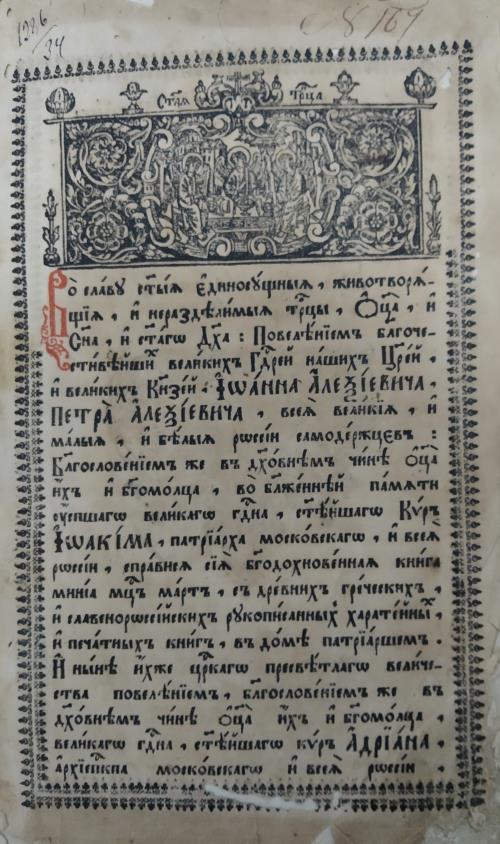 1286/34
№ 167
Ст҃ая Трⷪ҇ца
Во̀ сла́ву ст҃ы́ѧ є҆диносꙋ́щныѧ, животворѧ́-
щїѧ, и҆ нераздѣли́мыѧ трⷪ҇цы, Ѻ҆ц҃а̀, и҆
Сн҃а, и҆ ст҃а́гѡ Дх҃а : Повелѣ́нїемъ благоче-
сти́вѣйшиⷯ вели́кихъ Гдⷭ҇рей на́шихъ Цр҃ей,
и҆ вели́кихъ Кн҃зей. І҆ѡа́нна А҆леѯі́евича,
Петра̀ А҆леѯі́евича, всеѧ̀ вели́кїѧ, и҆
ма́лыѧ, и҆ бѣ́лыѧ рѡссі́и самоде́ржцєвъ :
Благослове́нїемъ же въ дх҃о́внѣмъ чи́нѣ Ѻ҆ц҃а̀
и҆́хъ и҆ бг҃омо́лца, во̀ бл҃же́ннѣй па́мѧти
ᲂу҆сп́шагѡ вели́кагѡ гдⷭ҇на, ст҃ѣ́йшагѡ Кѵ́ръ
І҆ѡаки́ма, патрїа́рха моско́вскагѡ, и҆ всеѧ̀
рѡссі́и, спра́висѧ сїѧ̀ бг҃одохнове́ннаѧ кни́га
минїа мцⷭ҇ъ ма́ртъ, съ дре́внихъ гре́ческихъ,
и҆ славенорѡссі́йскихъ рꙋкопи́санныхъ харате́йныⷯ,
и҆ печа́тныхъ кни́гъ, въ до́мѣ патрїа́ршемъ.
И҆ ны́нѣ и҆́хже цр҃кагѡ пресвѣ́тлагѡ вели́че-
ства повелѣ́нїемъ, бл҃гослове́нїемъ же въ
дх҃о́внѣмъ чи́нѣ Ѻ҆ц҃а̀ и҆́хъ и҆ бг҃омо́лца,
вели́кагѡ гдⷭ҇на, ст҃ѣ́йшагѡ кѵ́ръ А҆дрїа́на,
а҆рхїепⷭ҇кпа моско́вскагѡ и҆ всеѧ̀ рѡссі́и,